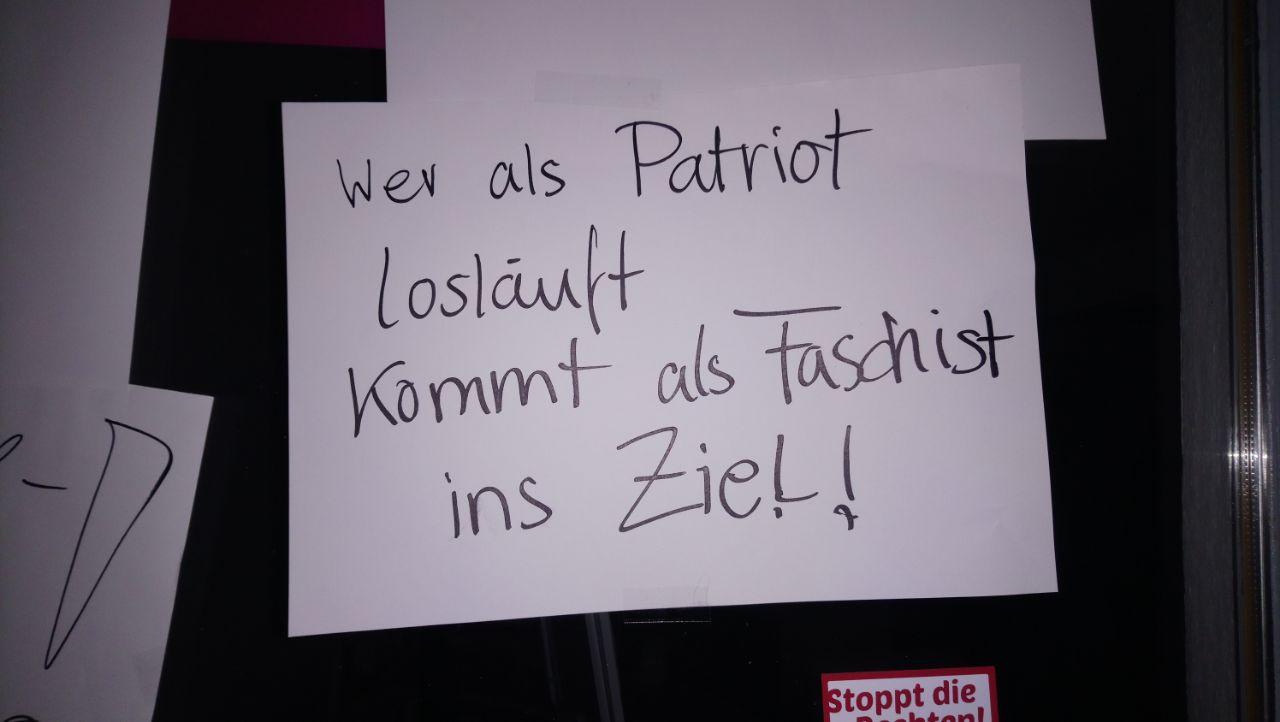 Wer als Patriot
losläuft
kommt als Faschist
ins Ziel!
Stoppt die
Rechten!